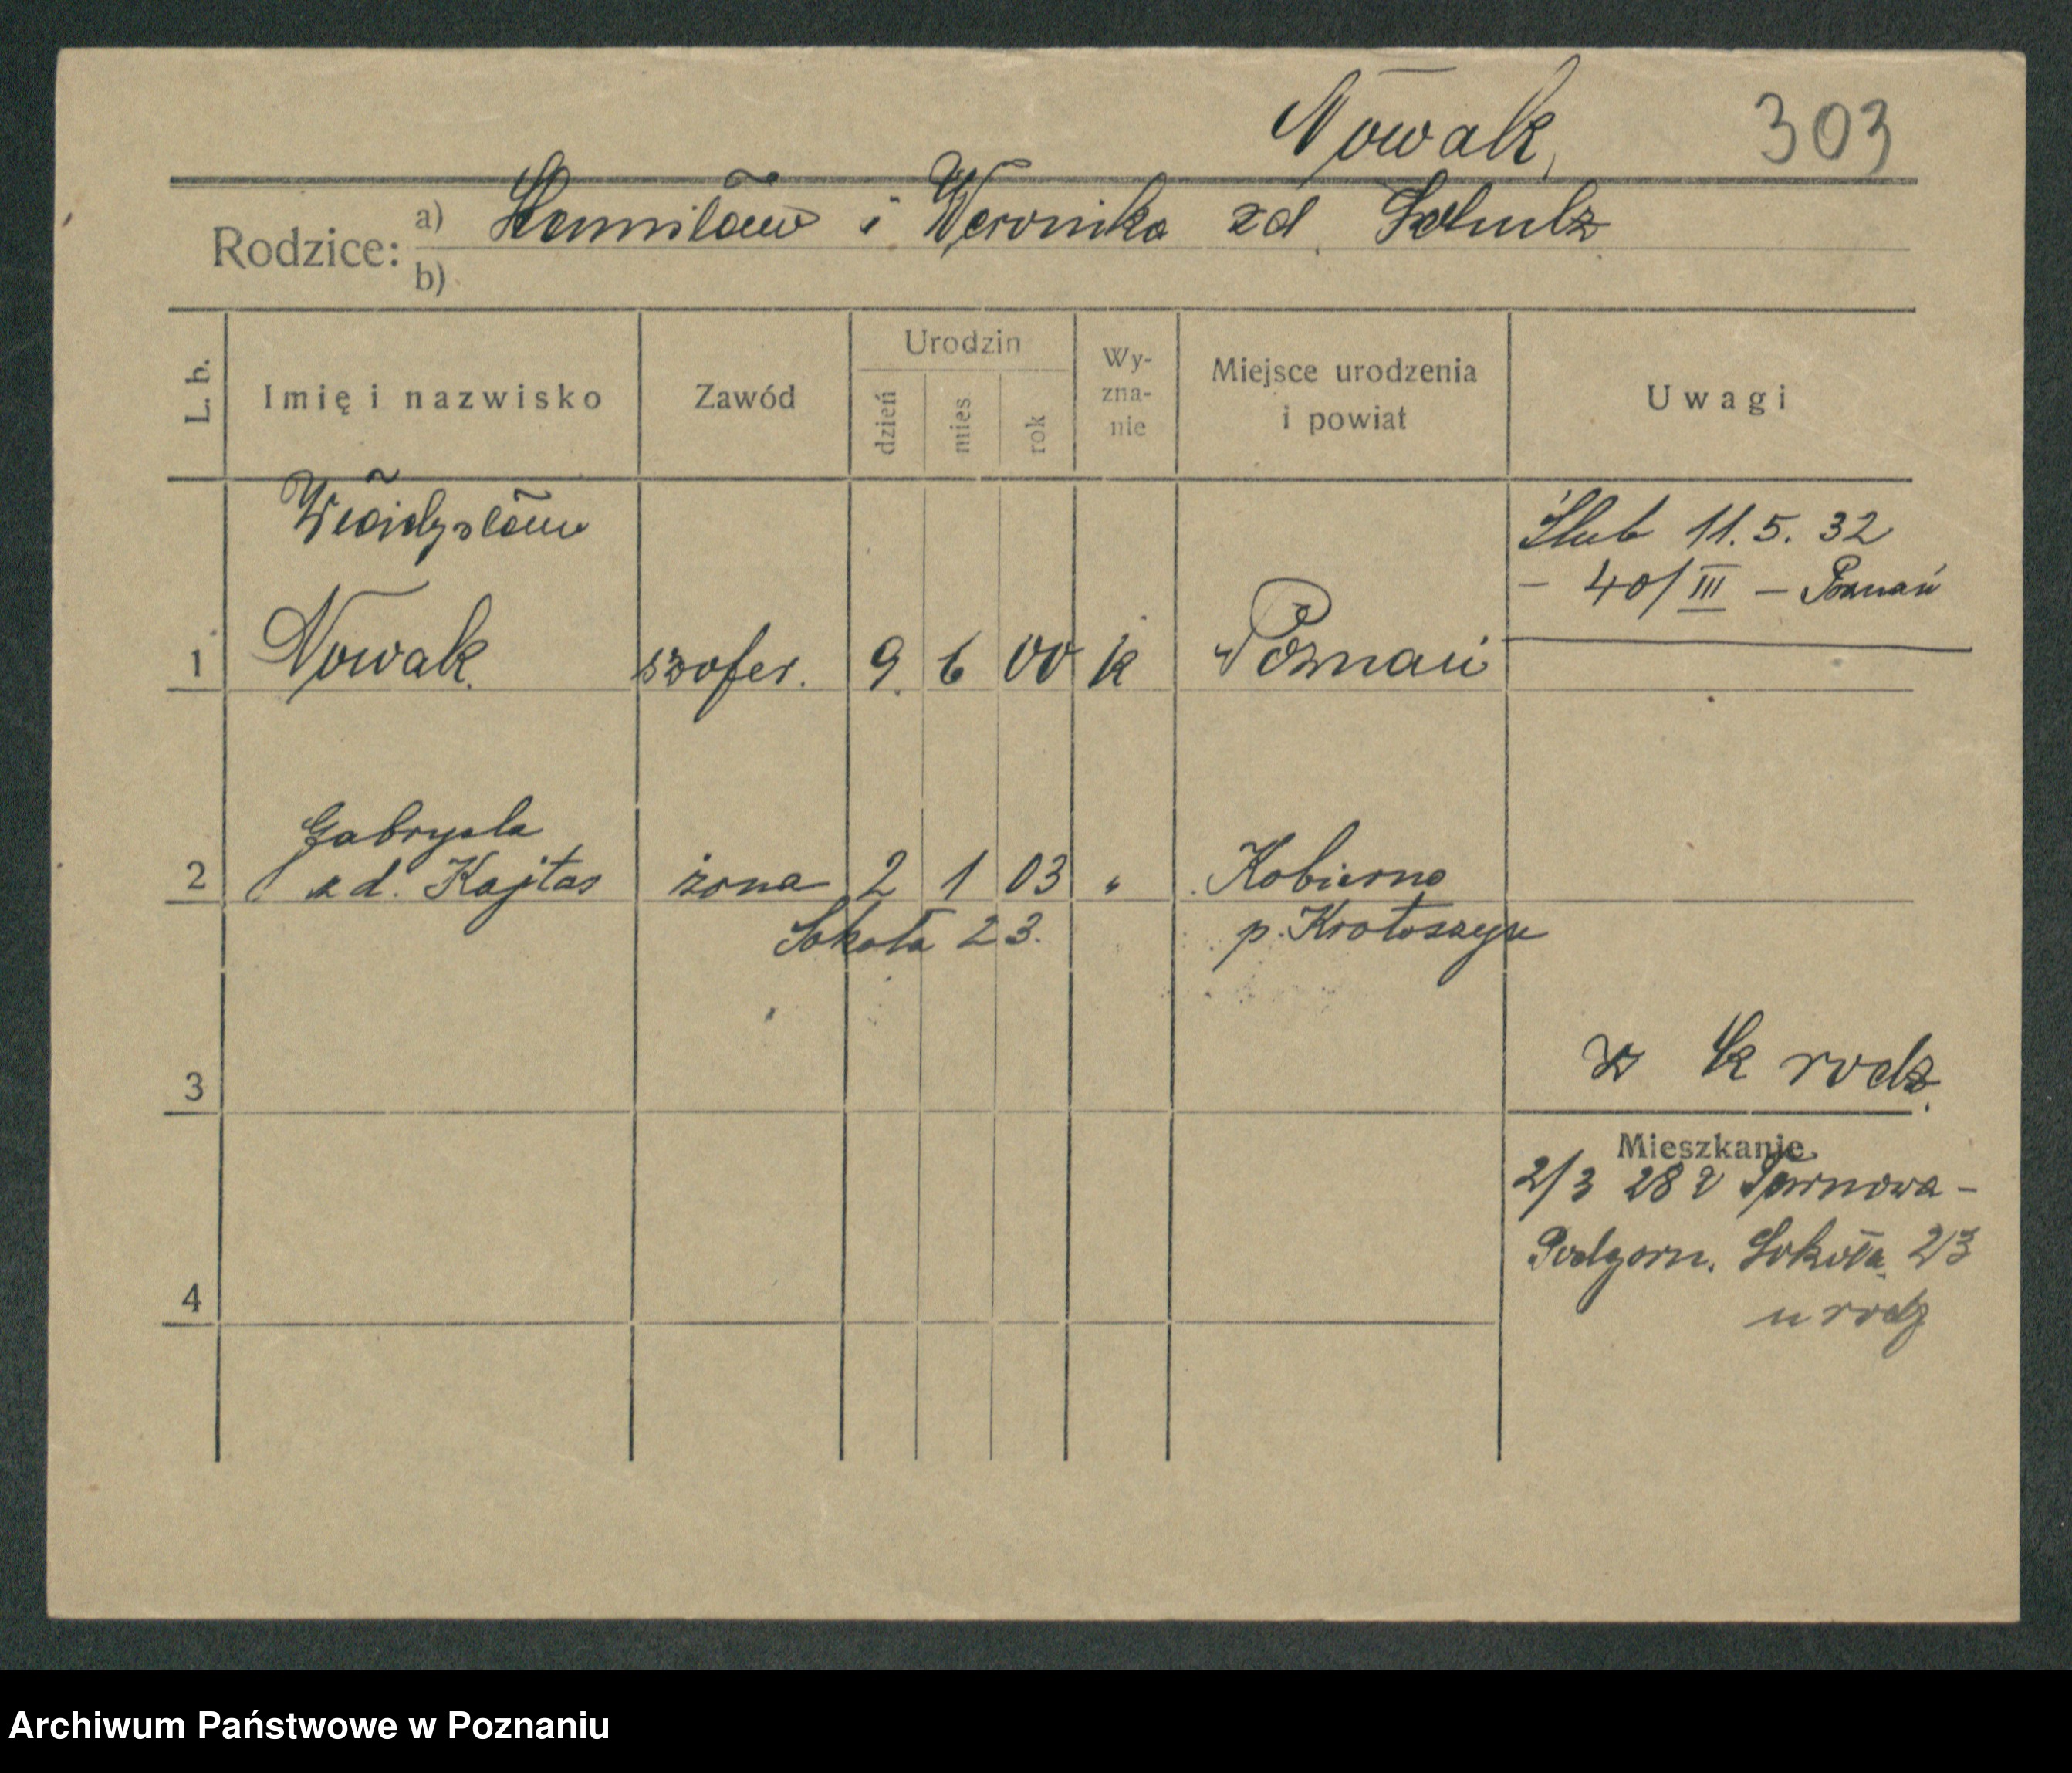 Nowak, 303
Rodzice: a) Stanisław i Weronika zd. Schulz
b)
L. b. Imię i nazwisko Zawód Urodzin dzień mies rok Wy-zna-nie Miejsce urodzenia i powiat Uwagi
Władysław
Ślub 11. 5. 32
- 40/III - Poznań
1 Nowak szofer. 9. 6 00 k Poznań
Gabryela
2 zd. Kajtas żona 2 1 03 " Kobierno
Sokoła 23. p. Krotoszyn
w k rodz.
3
Mieszkanie
2/3 28 z Tarnowa-
Podgorn. Sokoła 23
u rodz
4
Archiwum Państwowe w Poznaniu